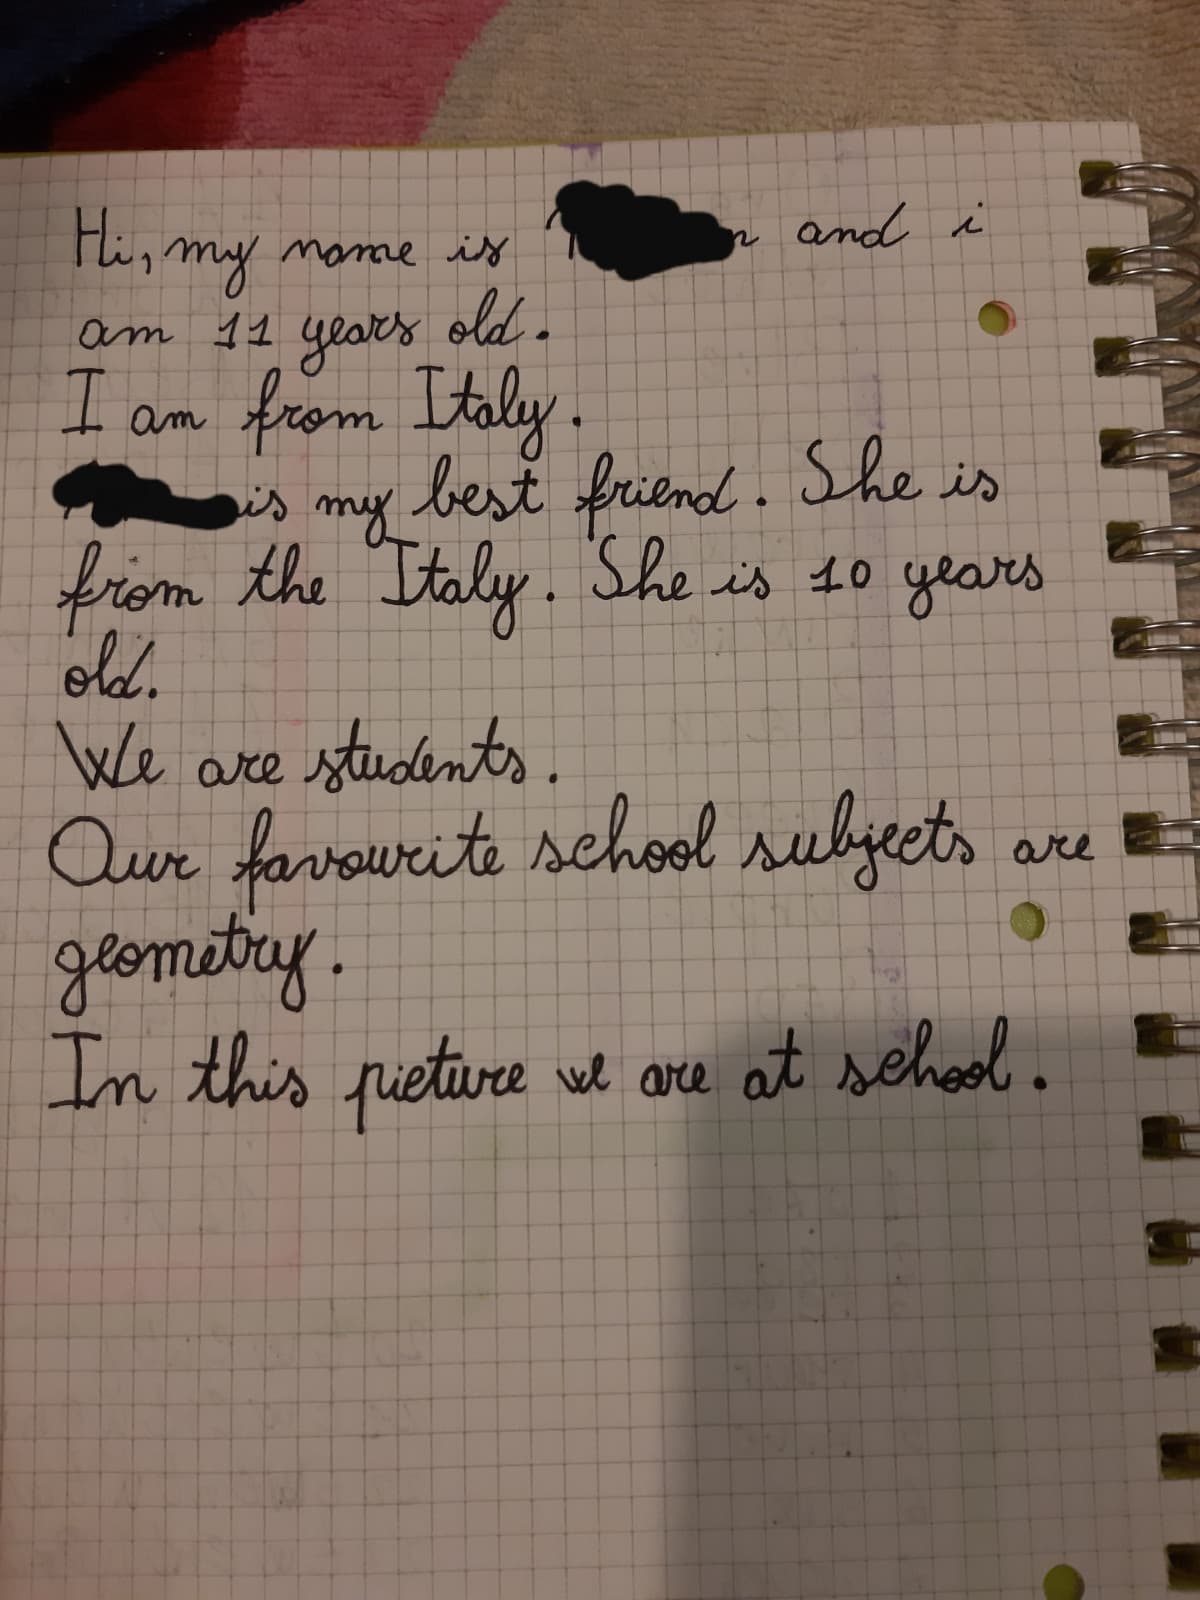 Hi, my name is and i
am 11 years old.
I am from Italy.
is my best friend. She is
from the Italy. She is 10 years
old.
We are students.
Our favourite school subjects are
geometry.
In this picture we are at school.